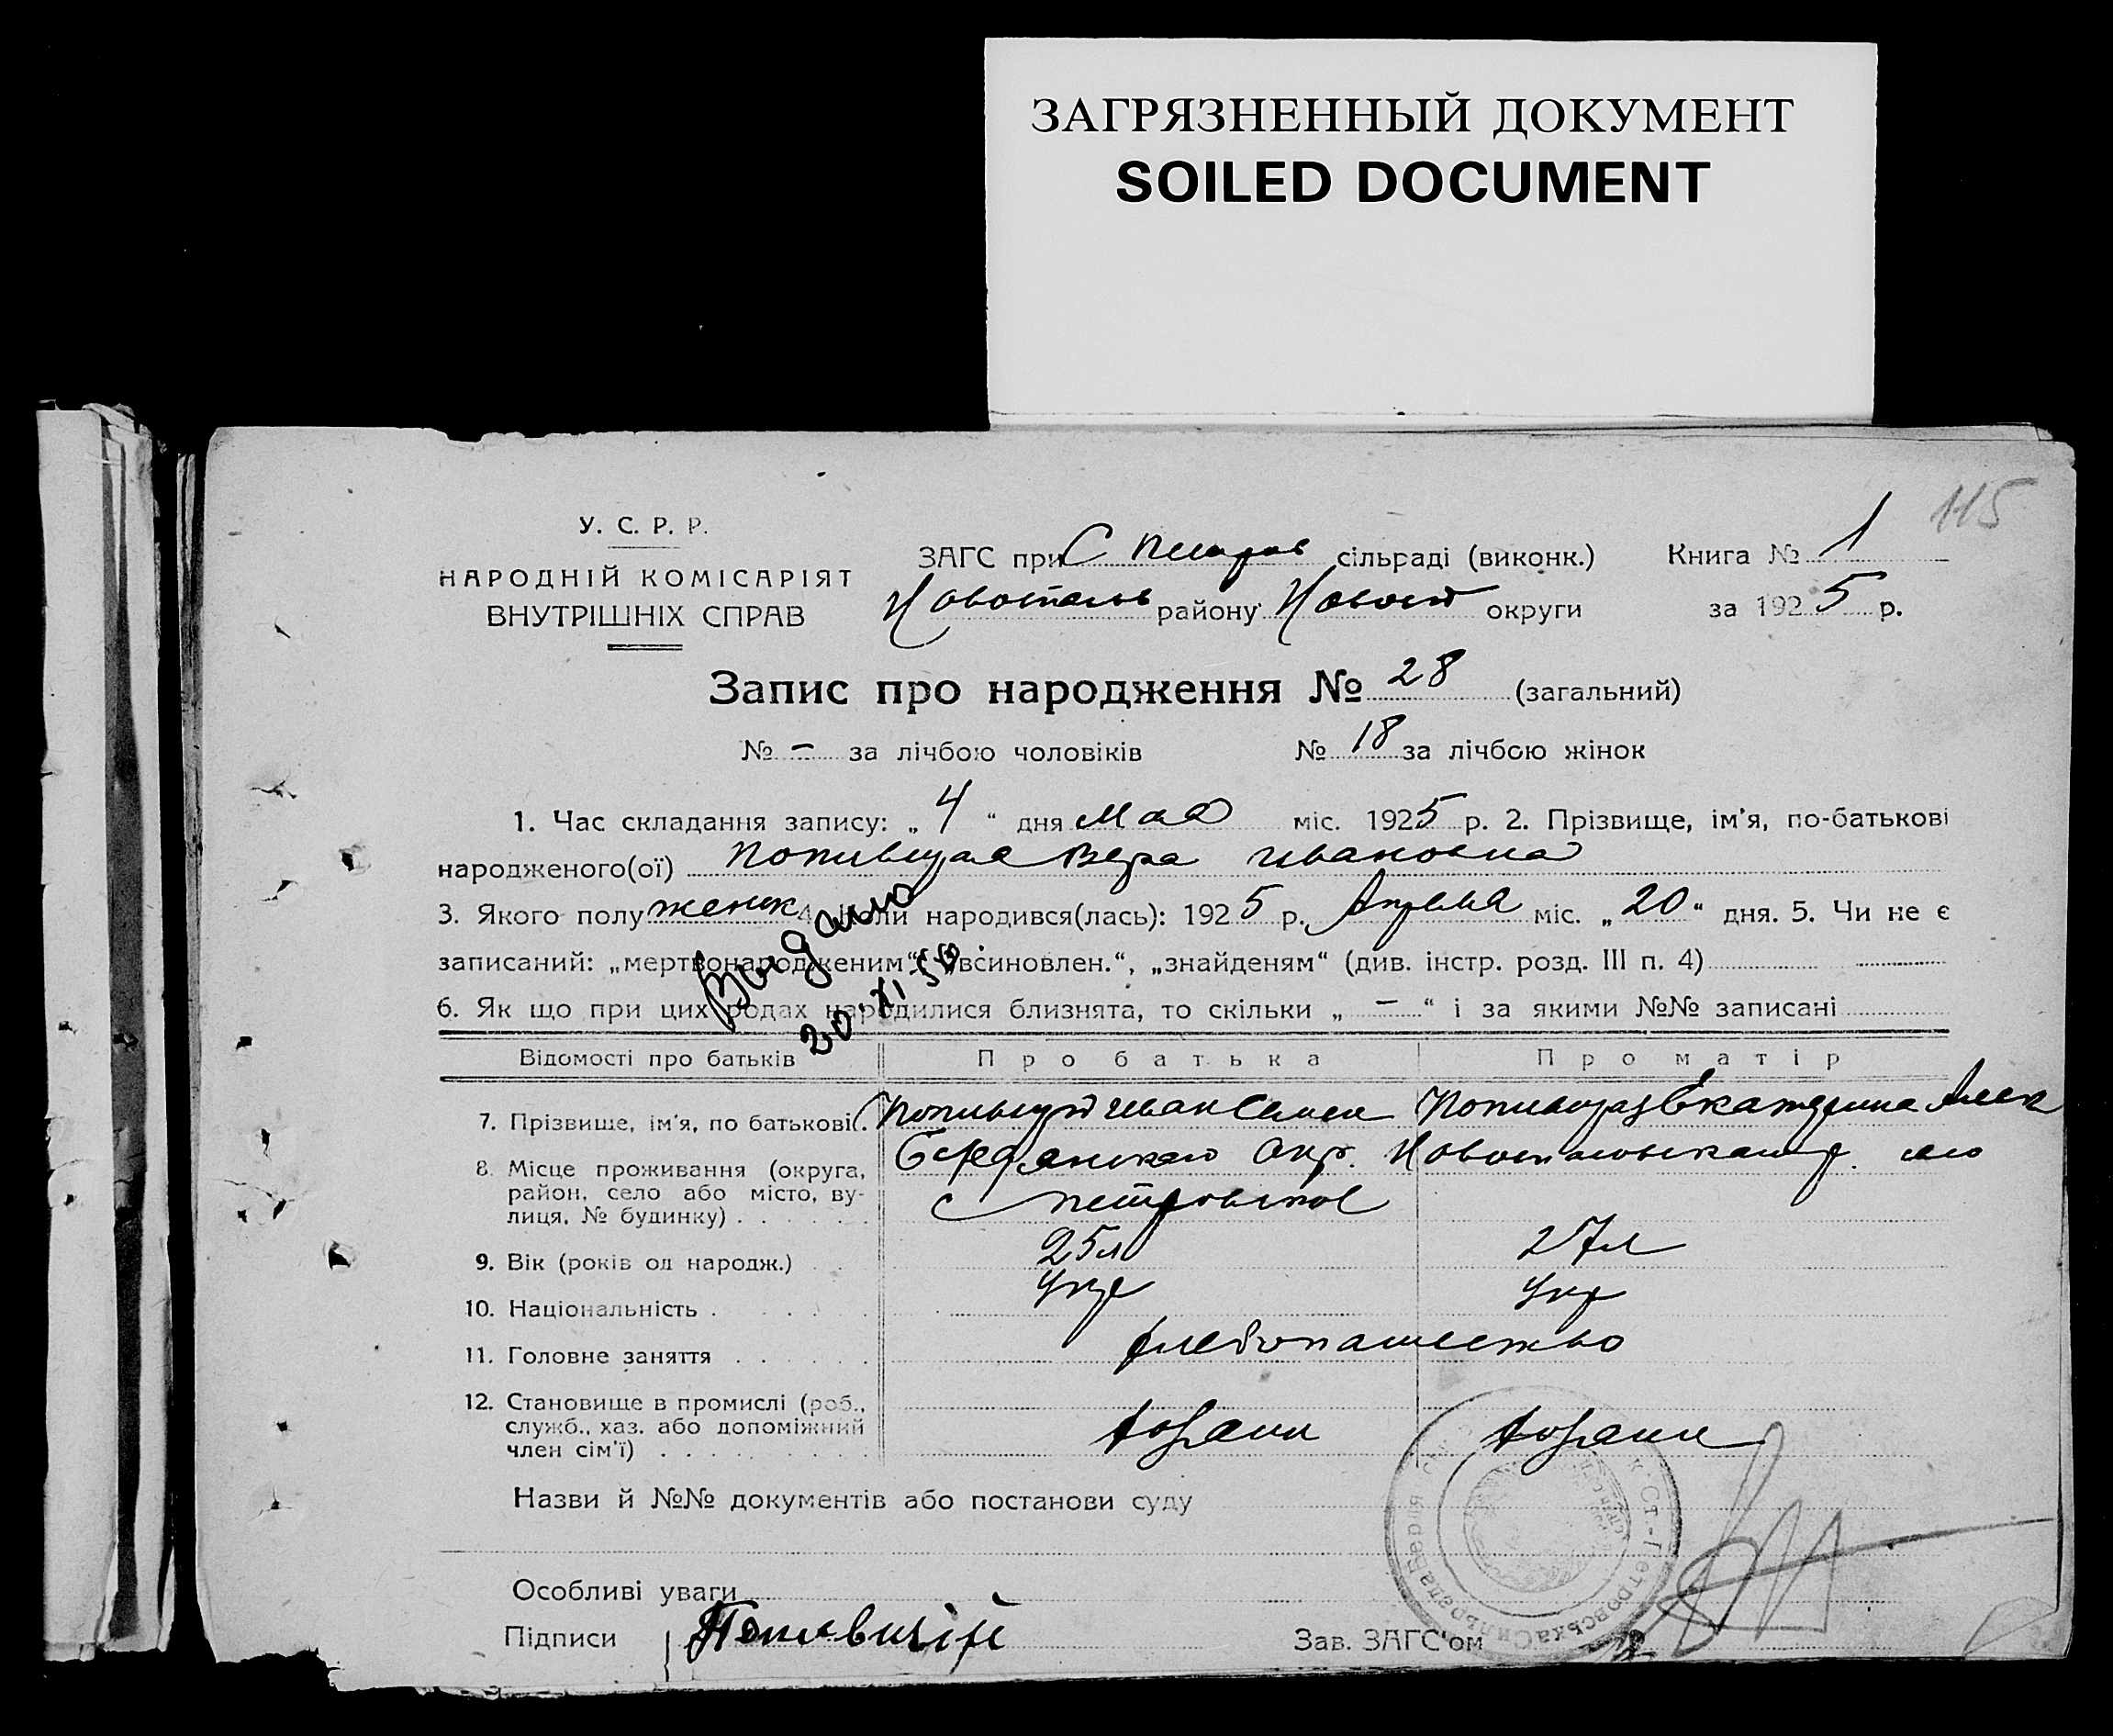 ЗАГРЯЗНЕННЫЙ ДОКУМЕНТ
SOILED DOCUMENT
115
У. С. Р. Р.
НАРОДНІЙ КОМІСАРІЯТ
ВНУТРІШНІХ СПРАВ
ЗАГС при С Петров сільраді (виконк.) Книга № 1
району округи за 1925 р.
Запис про народження № 28 (загальний)
№ – за лічбою чоловіків № 18 за лічбою жінок
1. Час складання запису: „ 4 “ дня Мая міс. 1925 р. 2. Прізвище, ім'я, по-батькові
народженого(ої) Вера Ивановна
3. Якого полу женск 4. Коли народився(лась): 1925 р. Апреля міс. „ 20 “ дня. 5. Чи не є
записаний: „мертвонародженим“, „всиновлен.“, „знайденям“ (див. інстр. розд. III п. 4)
6. Як що при цих родах народилися близнята, то скільки „ – “ і за якими №№ записані
Выдано
20.XI.50
Відомості про батьків Про батька Про матір
7. Прізвище, ім'я, по батькові. Иван Семен Екатерина Алек
8. Місце проживання (округа, район, село або місто, ву-
лиця, № будинку) Бердянского Окр. с Петровское
9. Вік (років од народж.) 25 л 27 л
10. Національність Укр Укр
11. Головне заняття хлебопашество
12. Становище в промислі (роб.,
служб., хаз. або допоміжний
член сім'ї) хозяин хозяин
Назви й №№ документів або постанови суду
Особливі уваги
Підписи Зав. ЗАГС'ом